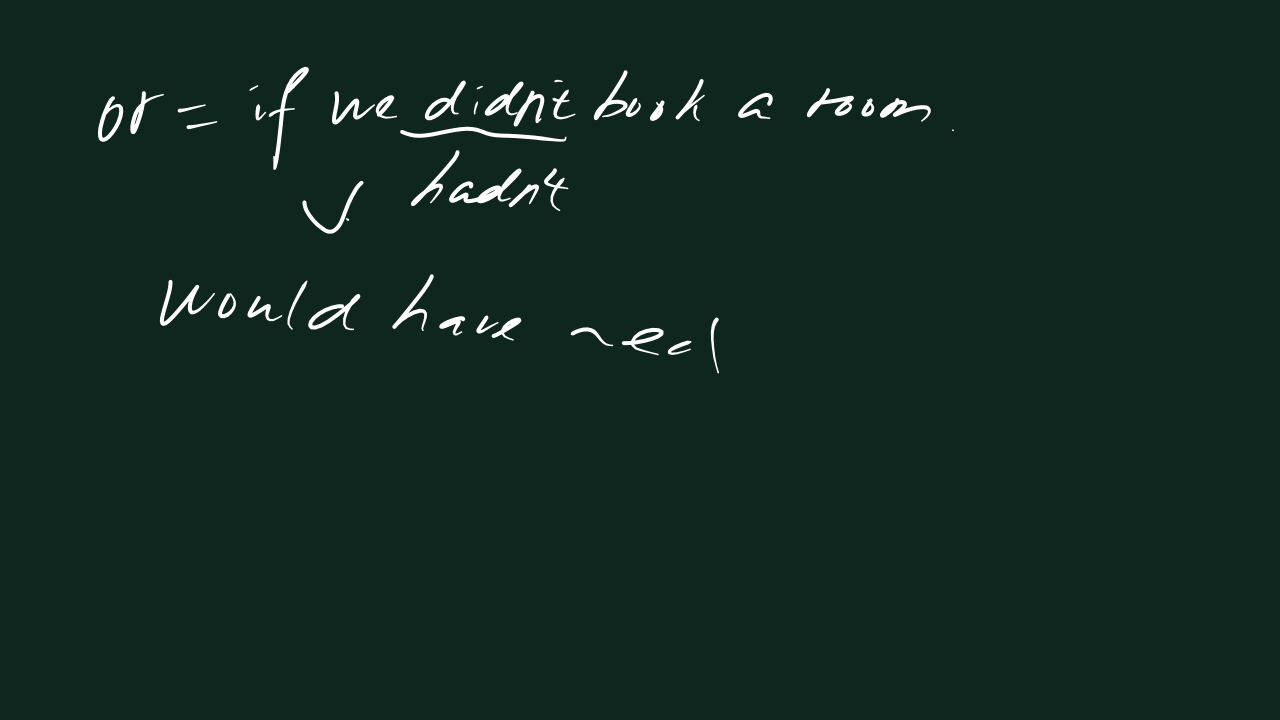 or = if we didn't book a room.
hadn't
would have